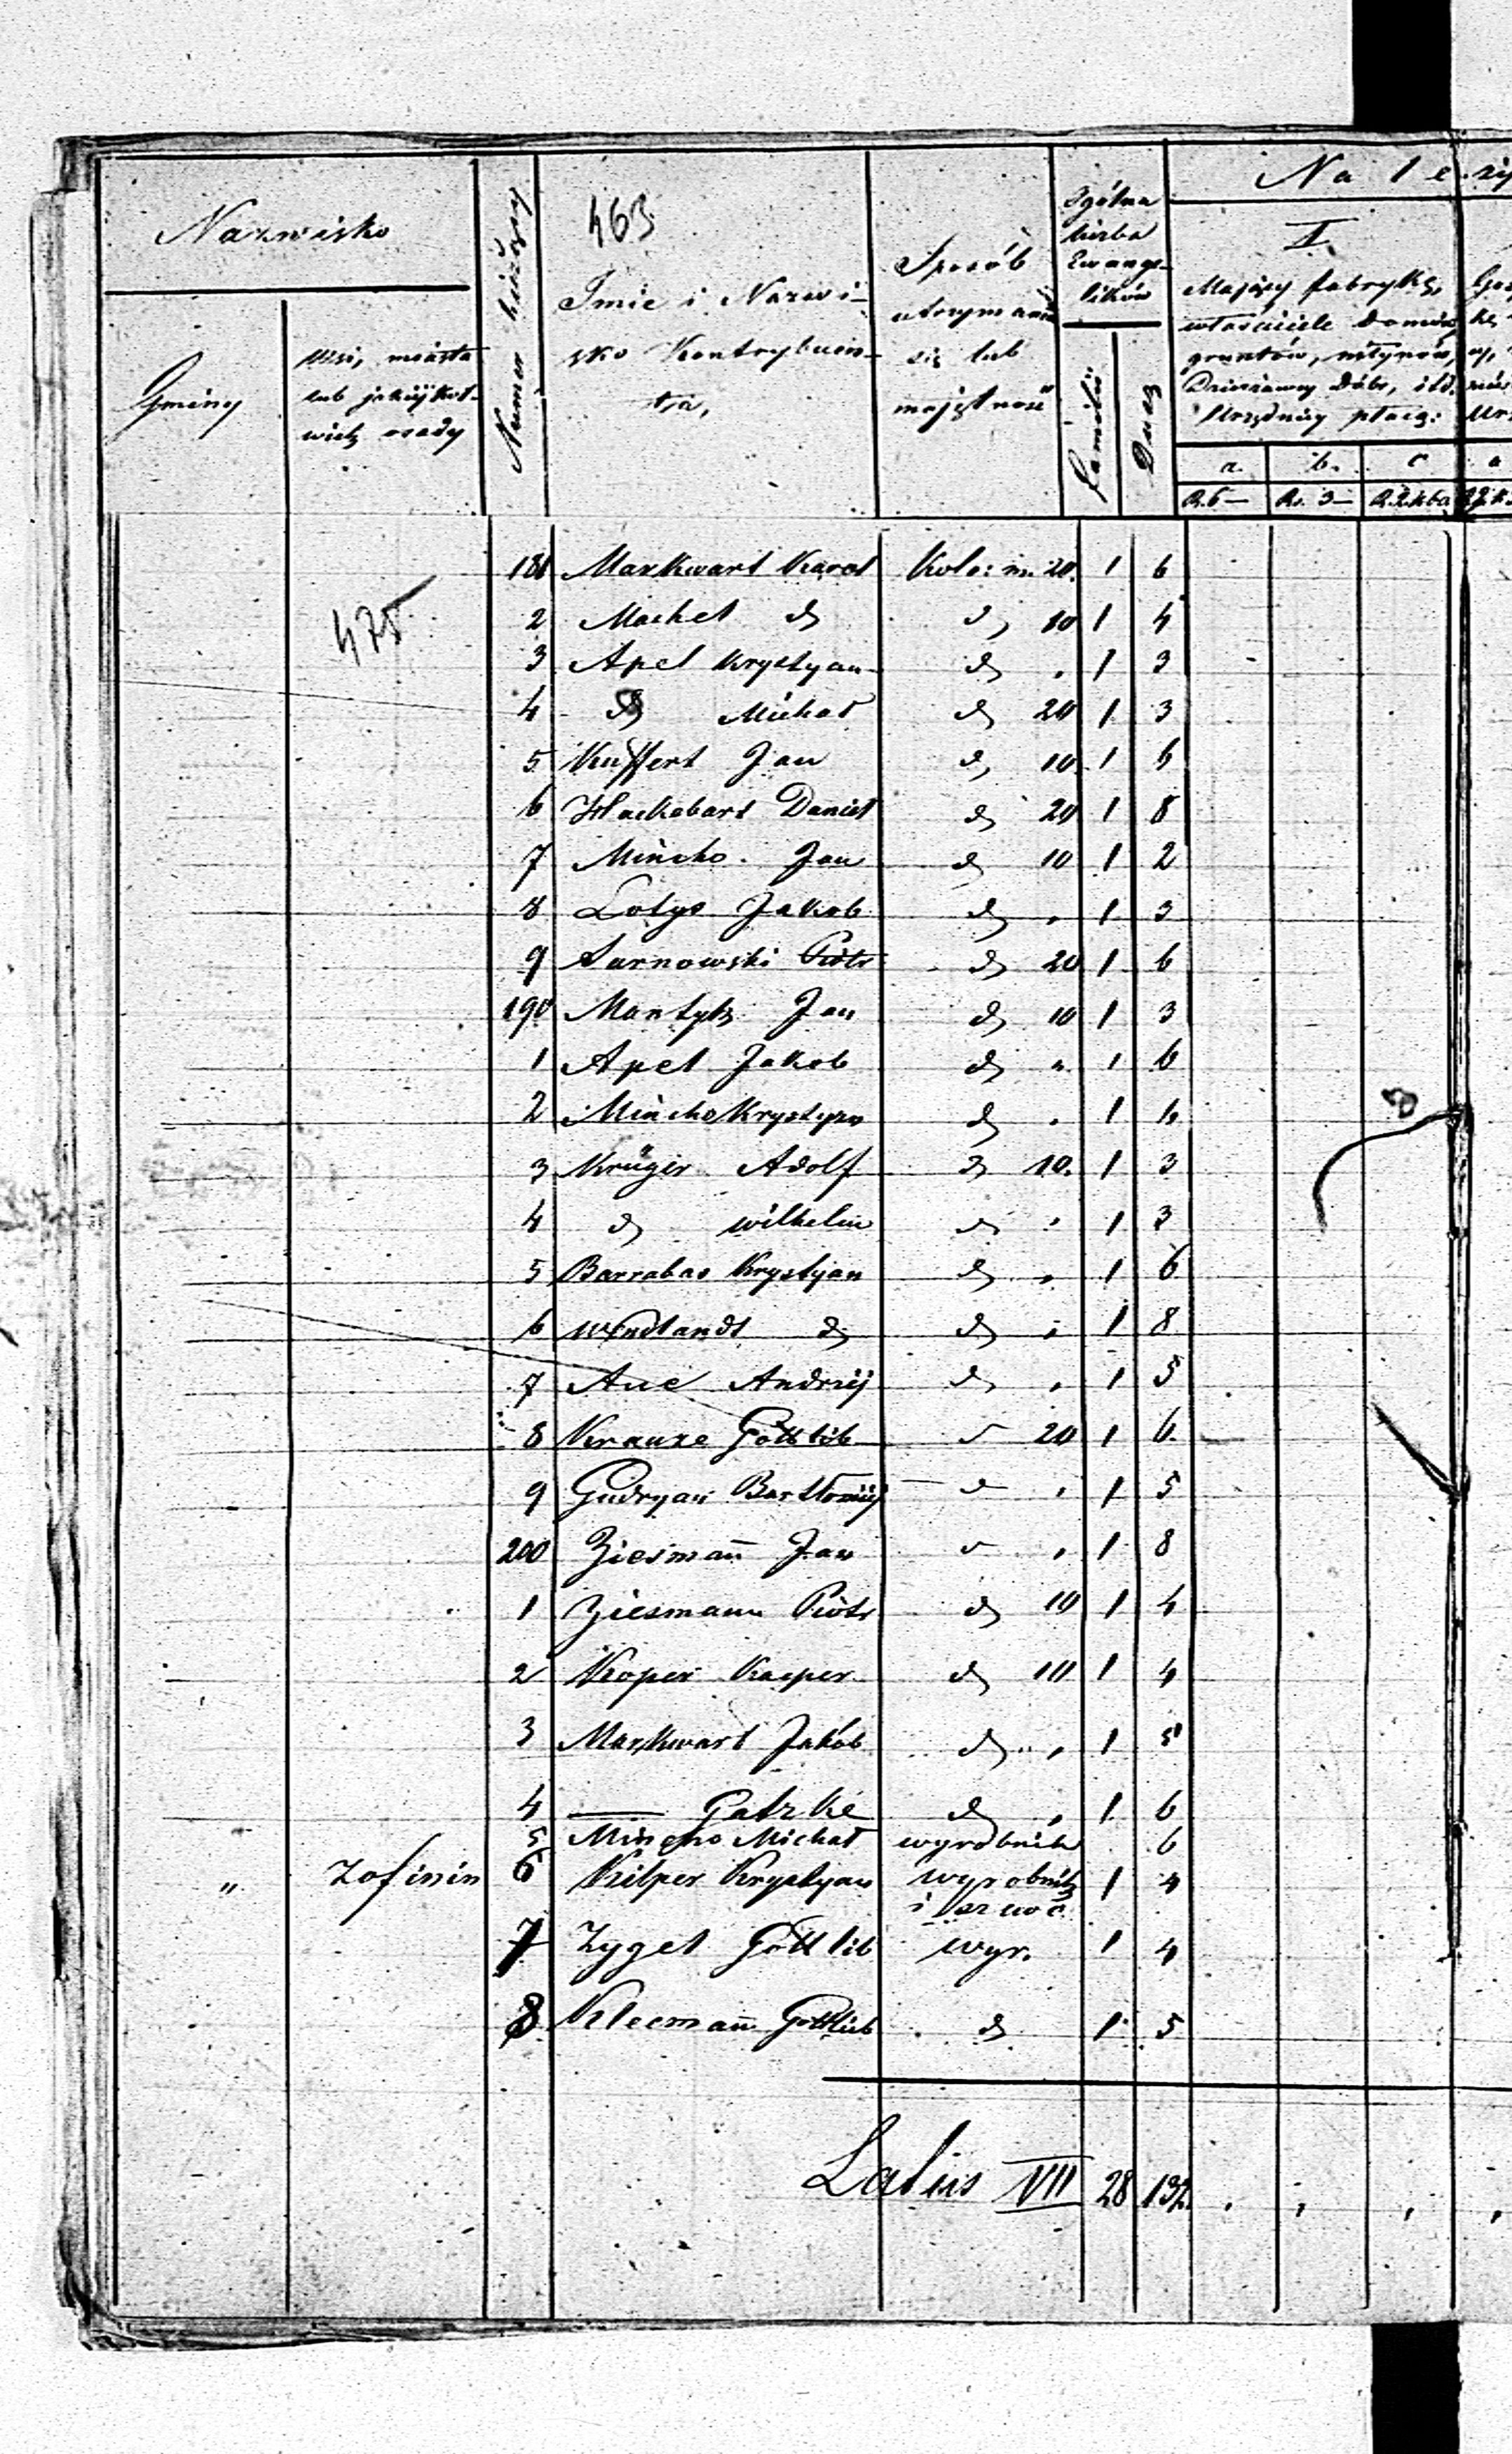 463
Nazwisko
Gminy
Wsi, miasta
lub jakiejkol-
wiek osady
Numer bieżący
Imie i Nazwi-
sko Kontrybuen-
ta,
Sposób
utrzymania
się lub
majętność
Ogólna
liczba
Ewange-
lików
Familii
Dusz
Na l e ży
I
Mający fabrykę,
właściciele Domów
gruntów, młynów,
Dzierżawcy Dóbr, itd.
Urzędnicy płacą:
a. b. c a
R. 6 — R. 3 —
475
181 Markwart Karol Kolo: m. 20. 1 6
2 Machel d d 10 1 4
3 Apel Krystyan d " 1 3
4 d Michał d 20 1 3
5 Kuffert Jan d 10 1 6
6 Hackebart Daniel d 20 1 8
7 Mincho Jan d 10 1 2
8 Lotys Jakob d " 1 3
9 Sarnowski Piotr d 20 1 6
190 Mantyk Jan d 10 1 3
1 Apel Jakob d " 1 6
2 Mincho Krystyan d " 1
3 Krüger Adolf d 10. 1 3
4 d Wilhelm d " 1 3
5 Barrabas Krystjan d " 1 6
6 Wendlandt d d " 1 8
7 Aue Andrzej d " 1 5
8 Krauze Gottlib d 20 1 6
9 Gudryan Bartłomiej d " 1 5
200 Ziesman̄ Jan d " 1 8
1 Ziesmann Piotr d 10 1 4
2 Koper Kacper d 10 1 4
3 Markwart Jakób d " 1 5
4 — Gatzke d " 1 6
5 Mincho Michał wyrobnik 6
" Zofinin 6 Kilper Krystyan wyrobnik 1 4
i szewc
7 Zygel Gottlib wyr. 1 4
8 Kleeman̄ Gottlieb d 1 5
Latus VII 28 132